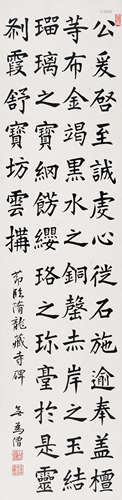 公爰啓至誠虔心徙石施逾奉盖檀
等布金竭黑水之銅罄赤岸之玉結
瑠璃之寶網飾纓珞之珍臺於是靈
刹霞舒寶坊雲構
節臨隋龍藏寺碑